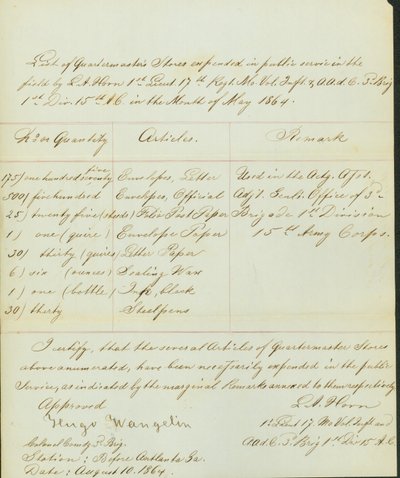 List of Quartermaster's Stores expended in public service in the
field by L.A. Horn 1st Lieut 17th Regt. Mo. Vol. Inft. & A.a.d.C. 3d Brig
1st Div. 15th A.C. in the Month of May 1864.
No or Quantity Articles. Remark
175) one hundred seventy five Envelopes, Letter Used in the Actg. Asst.
500) five hundred Envelopes, Official Adjt. Genls. Office of 3d
25) twenty five (sheets) Folio Post Paper Brigade 1st Division
1) one (quire) Envelope Paper 15th Army Corps.
30) thirty (quires) Letter Paper
6) six (ounces) Sealing Wax
1) one (bottle) Ink, black
30) thirty Steelpens
I certify, that the several Articles of Quartermaster Stores
above enumerated, have been necessarily expended in the public
Service, as indicated by the marginal Remarks annexed to them respectively
Approved
Hugo Wangelin
Colonel Comdg 3d Brig.
L.A. Horn
1st Lieut 17. Mo Vol. Inft and
A.a.d.C. 3d Brig 1st Div 15 A.C.
Station: Before Atlanta Ga.
Date: August 10. 1864.